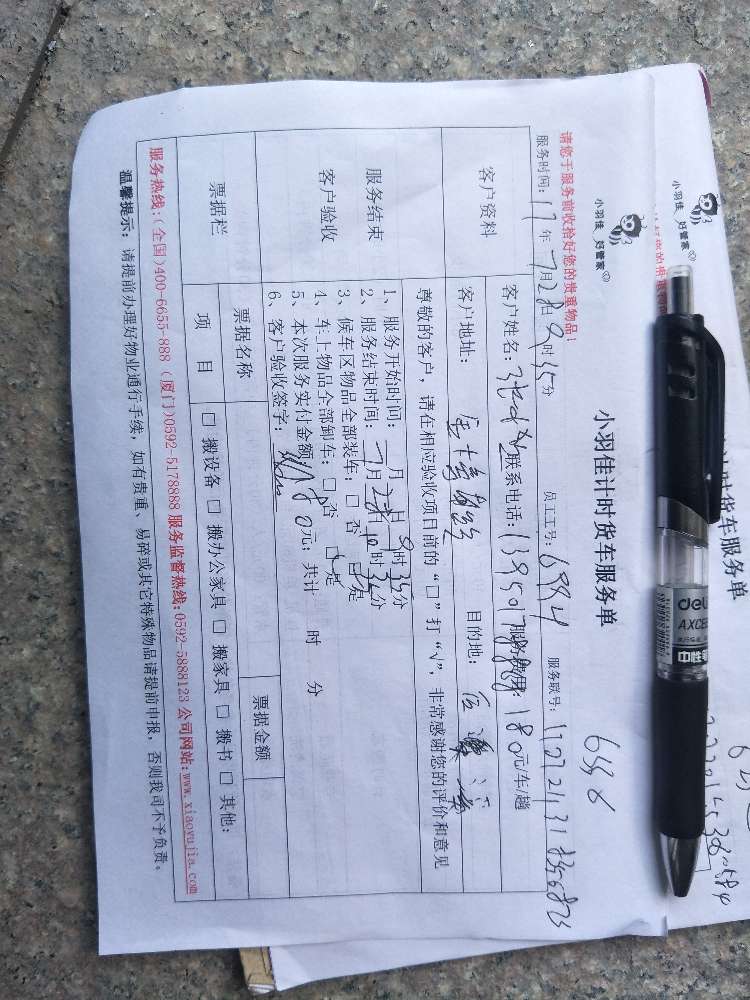 小羽佳 好管家
小羽佳计时货车服务单
请您于服务前收拾好您的贵重物品！
服务时间：17年7月28日9时35分 员工号：6994 服务联号：
客户资料
客户姓名： 联系电话： 服务费用：180元/车/趟
客户地址： 目的地：
尊敬的客户，请在相应验收项目前的“□”打“√”，非常感谢您的评价和意见
服务结束
客户验收
1、服务开始时间： 月 日9时35分
2、服务结束时间：7月28日10时35分
3、候车区物品全部装车：□否 □是
4、车上物品全部卸车：□否 □是
5、本次服务实付金额180元；共计 时 分
6、客户验收签字：
票据栏
票据名称 票据金额
项目 □搬设备 □搬办公家具 □搬家具 □搬书 □其他：
服务热线：（全国）400-6655-888（厦门）0592-5178888 服务监督热线：0592-5888123 公司网站：www.xiaoyujia.com
温馨提示：请提前办理好物业通行手续，如有贵重、易碎或其它特殊物品请提前申报，否则我司不予负责。
小羽佳 好管家
计时货车服务单
deli
中性笔